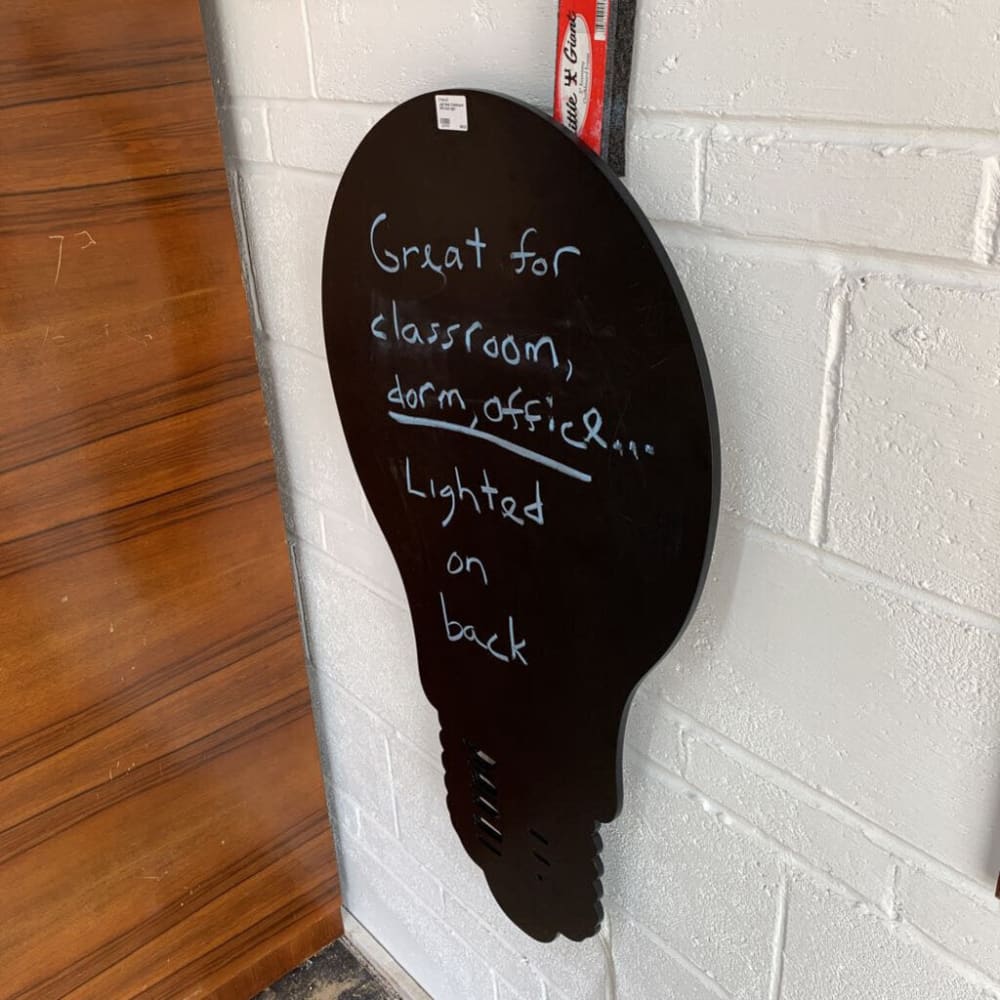 Little Giant
Great for
classroom,
dorm, office...
Lighted
on
back
73